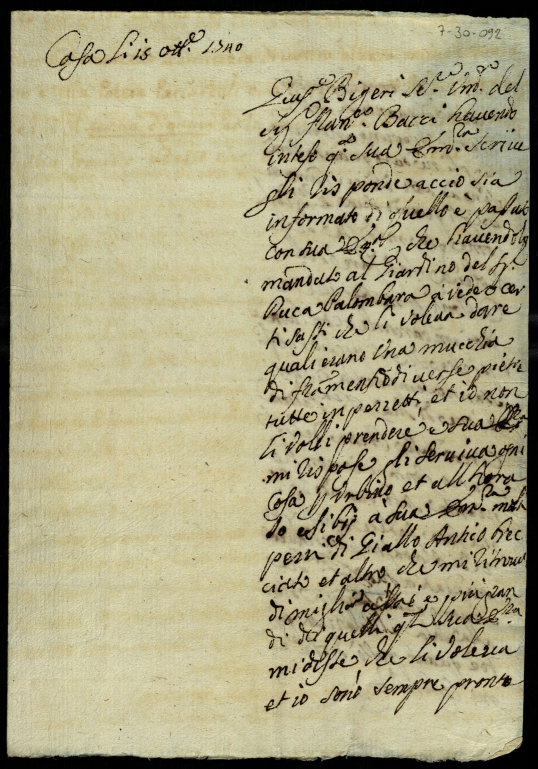 7-30-092
Casa li 15 ott.e 1740
Gius.e Bigeri Se.re Um.o del
Sig.e Fran.co Bacci havendo
inteso q.to Sua Em.za Scrive
gli risponde acciò sia
informato di quello è passato
con sua Em.za che havendo
mandato al Giardino del Sr.
Duca Palombara à vedere cer
ti sassi che li voleva dare
quali erano Una mucchia
di framenti di verse pietre
tutte in pezzetti, et io non
li volli prendere e sua Em.za
mi rispose gli serviva ogni
Cosa p Urbino et all hora
Io esibij à sua Em.za molti
pezzi di Giallo Antico brec
ciato et altro che mi ritrovo
di miglior assai e più gran
di di quelli q.li sua Em.za
mi disse che li voleva
et io sono sempre pronto